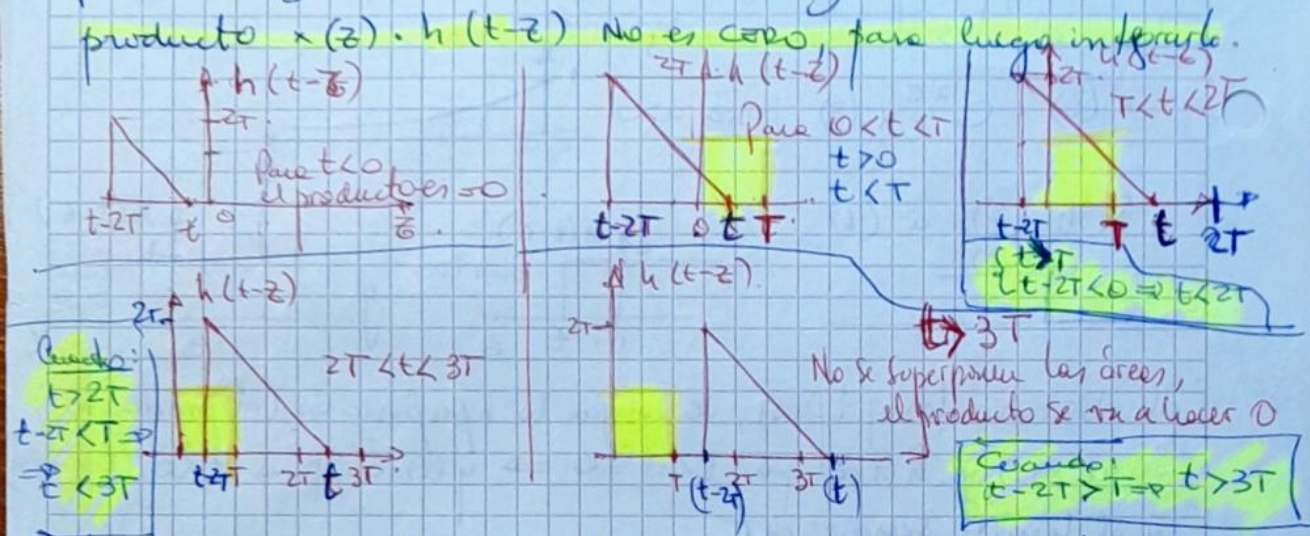 producto x(z) · h(t-z) No es CERO, para luego integrarlo.
h(t-z)
2T
Para t<0
el producto es =0
t-2T t 0 z
2T h(t-z)
Para 0<t<T
t>0
t<T
t-2T 0 t T
2T h(t-z)
T<t<2T
t-2T T t 2T
{ t>T
{ t-2T<0 => t<2T
h(t-z)
2T
Cuando:
t>2T
t-2T<T =>
=> t<3T
2T<t<3T
t-2T T 2T t 3T
h(t-z)
2T
t>3T
No se superponen las áreas,
el producto se va a hacer 0
T (t-2T) 2T 3T (t)
Cuando:
t-2T>T => t>3T